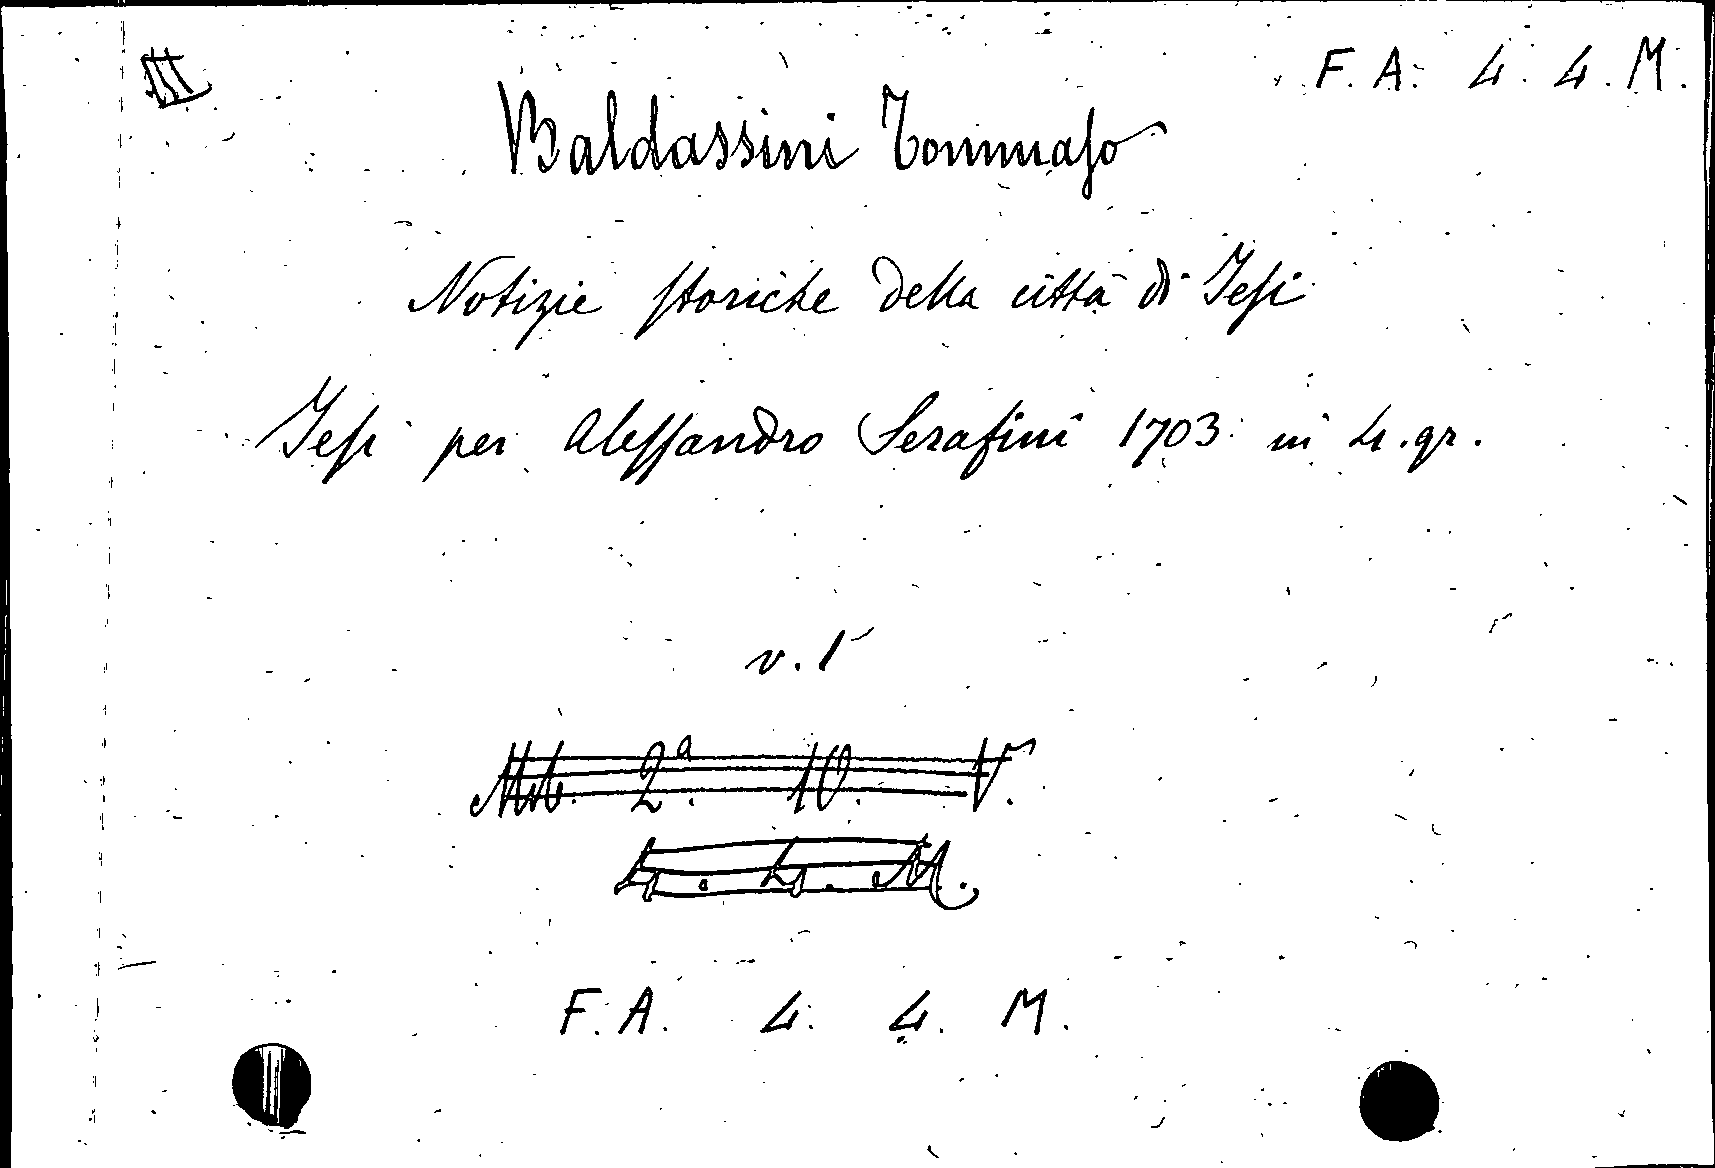 F. A. 4. 4. M.
Baldassini Tommaso
Notizie storiche della città di Jesi
Jesi per Alessandro Serafini 1703 in 4. gr.
v. 1
2ª. 10. V.
4. 4. M.
F. A. 4. 4. M.